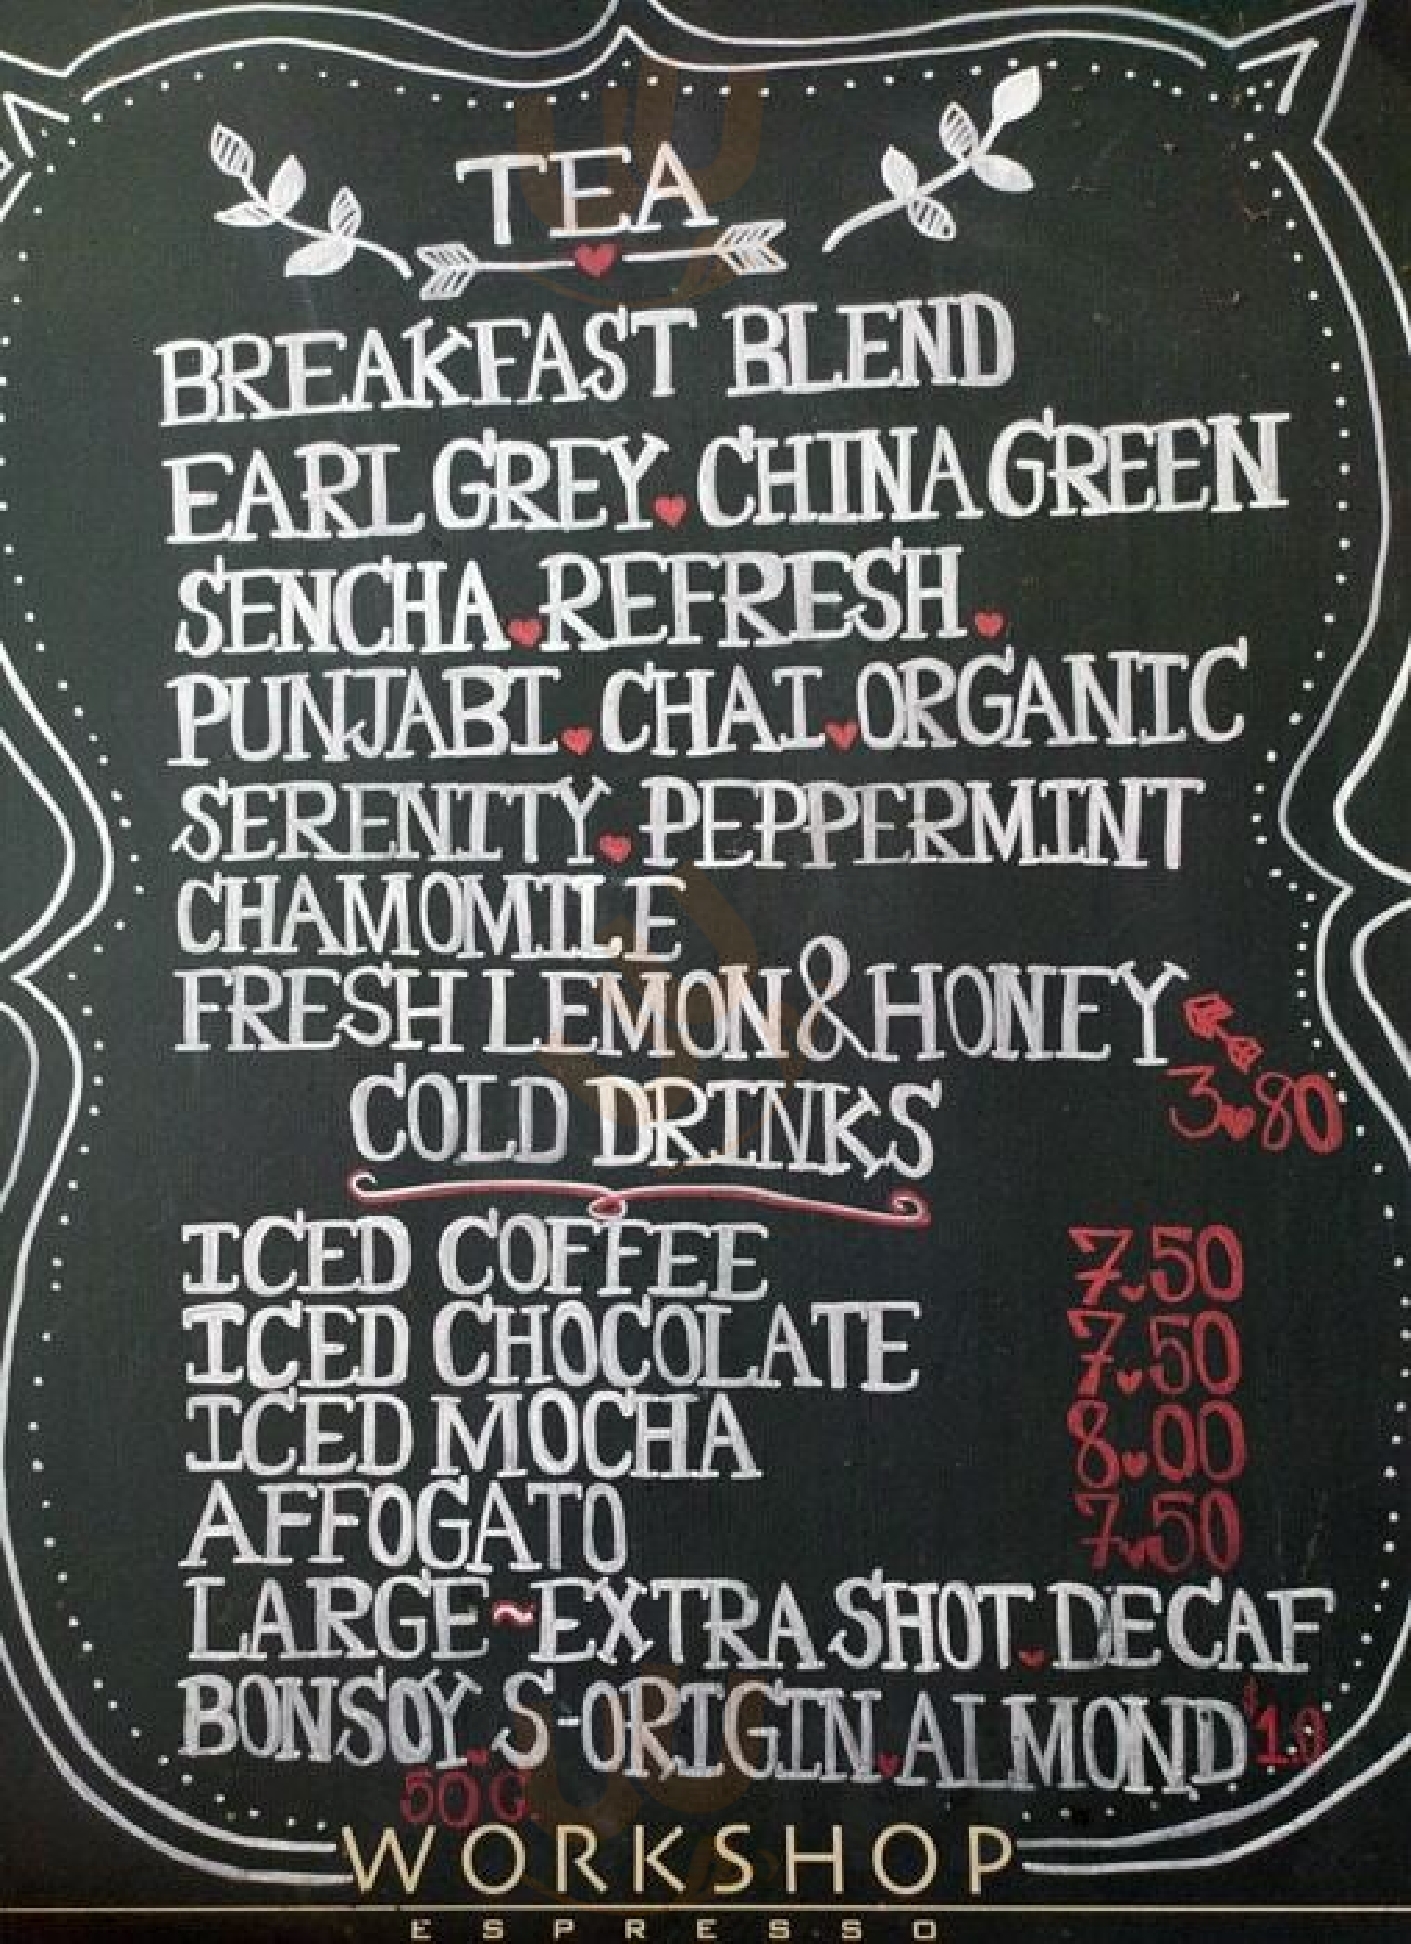 TEA
BREAKFAST BLEND
EARL GREY CHINA GREEN
SENCHA REFRESH
PUNJABI CHAI ORGANIC
SERENITY PEPPERMINT
CHAMOMILE
FRESH LEMON & HONEY
3.80
COLD DRINKS
ICED COFFEE 7.50
ICED CHOCOLATE 7.50
ICED MOCHA 8.00
AFFOGATO 7.50
LARGE ~ EXTRA SHOT DECAF
BONSOY S-ORIGIN ALMOND
50c
WORKSHOP
ESPRESSO